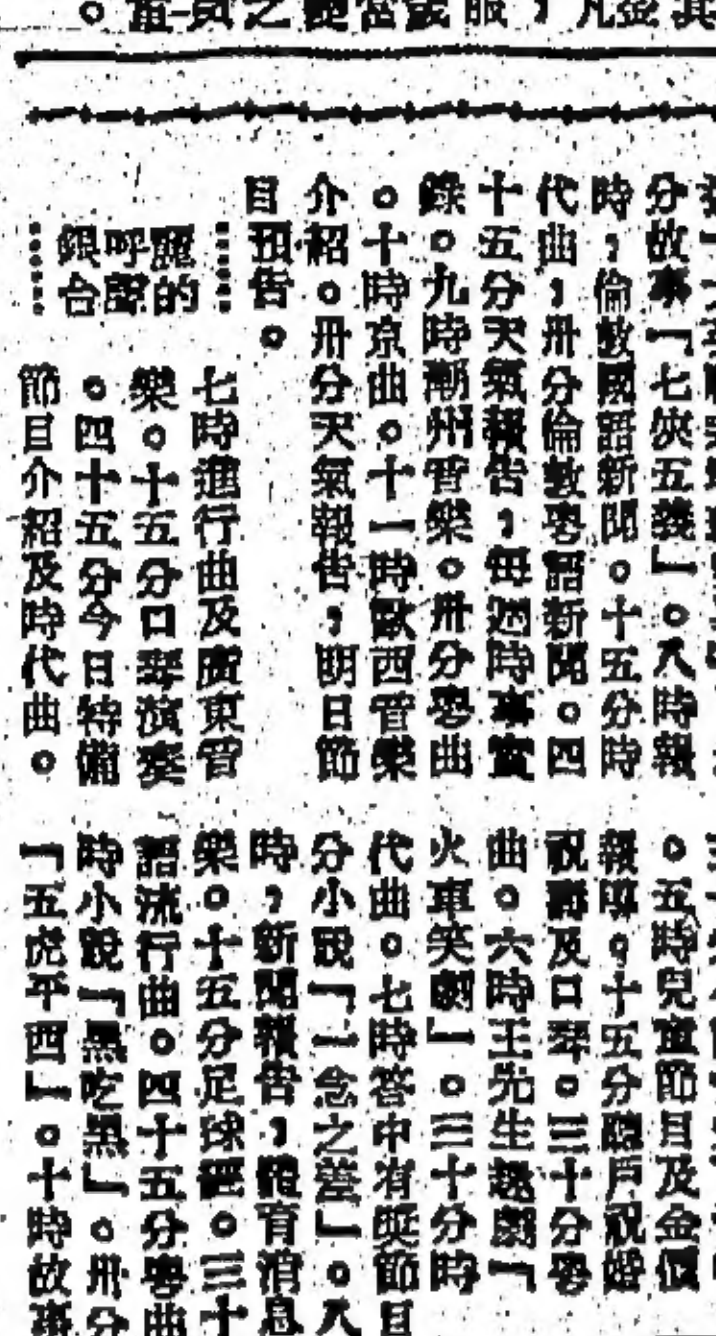 分故事「七俠五義」。八時報
時，倫敦國語新聞。十五分時
代曲，卅分倫敦粵語新聞。四
十五分天氣報告，每週時事實
錄。九時潮州音樂。卅分粵曲
。十時京曲。十一時歐西音樂
介紹。卅分天氣報告，明日節
目預告。
麗的
呼聲
銀台
七時進行曲及廣東音
樂。十五分口琴演奏
。四十五分今日特備
節目介紹及時代曲。
。五時兒童節目及金價
報導。十五分聽戶祝婚
祝壽及口琴。三十分粵
曲。六時王先生趣劇「
火車笑劇」。三十分時
代曲。七時答中有奬節目
分小說「一念之差」。八
時，新聞報告，體育消息
樂。十五分足球經。三十
語流行曲。四十五分粵曲
時小說「黑吃黑」。卅分
「五虎平西」。十時故事